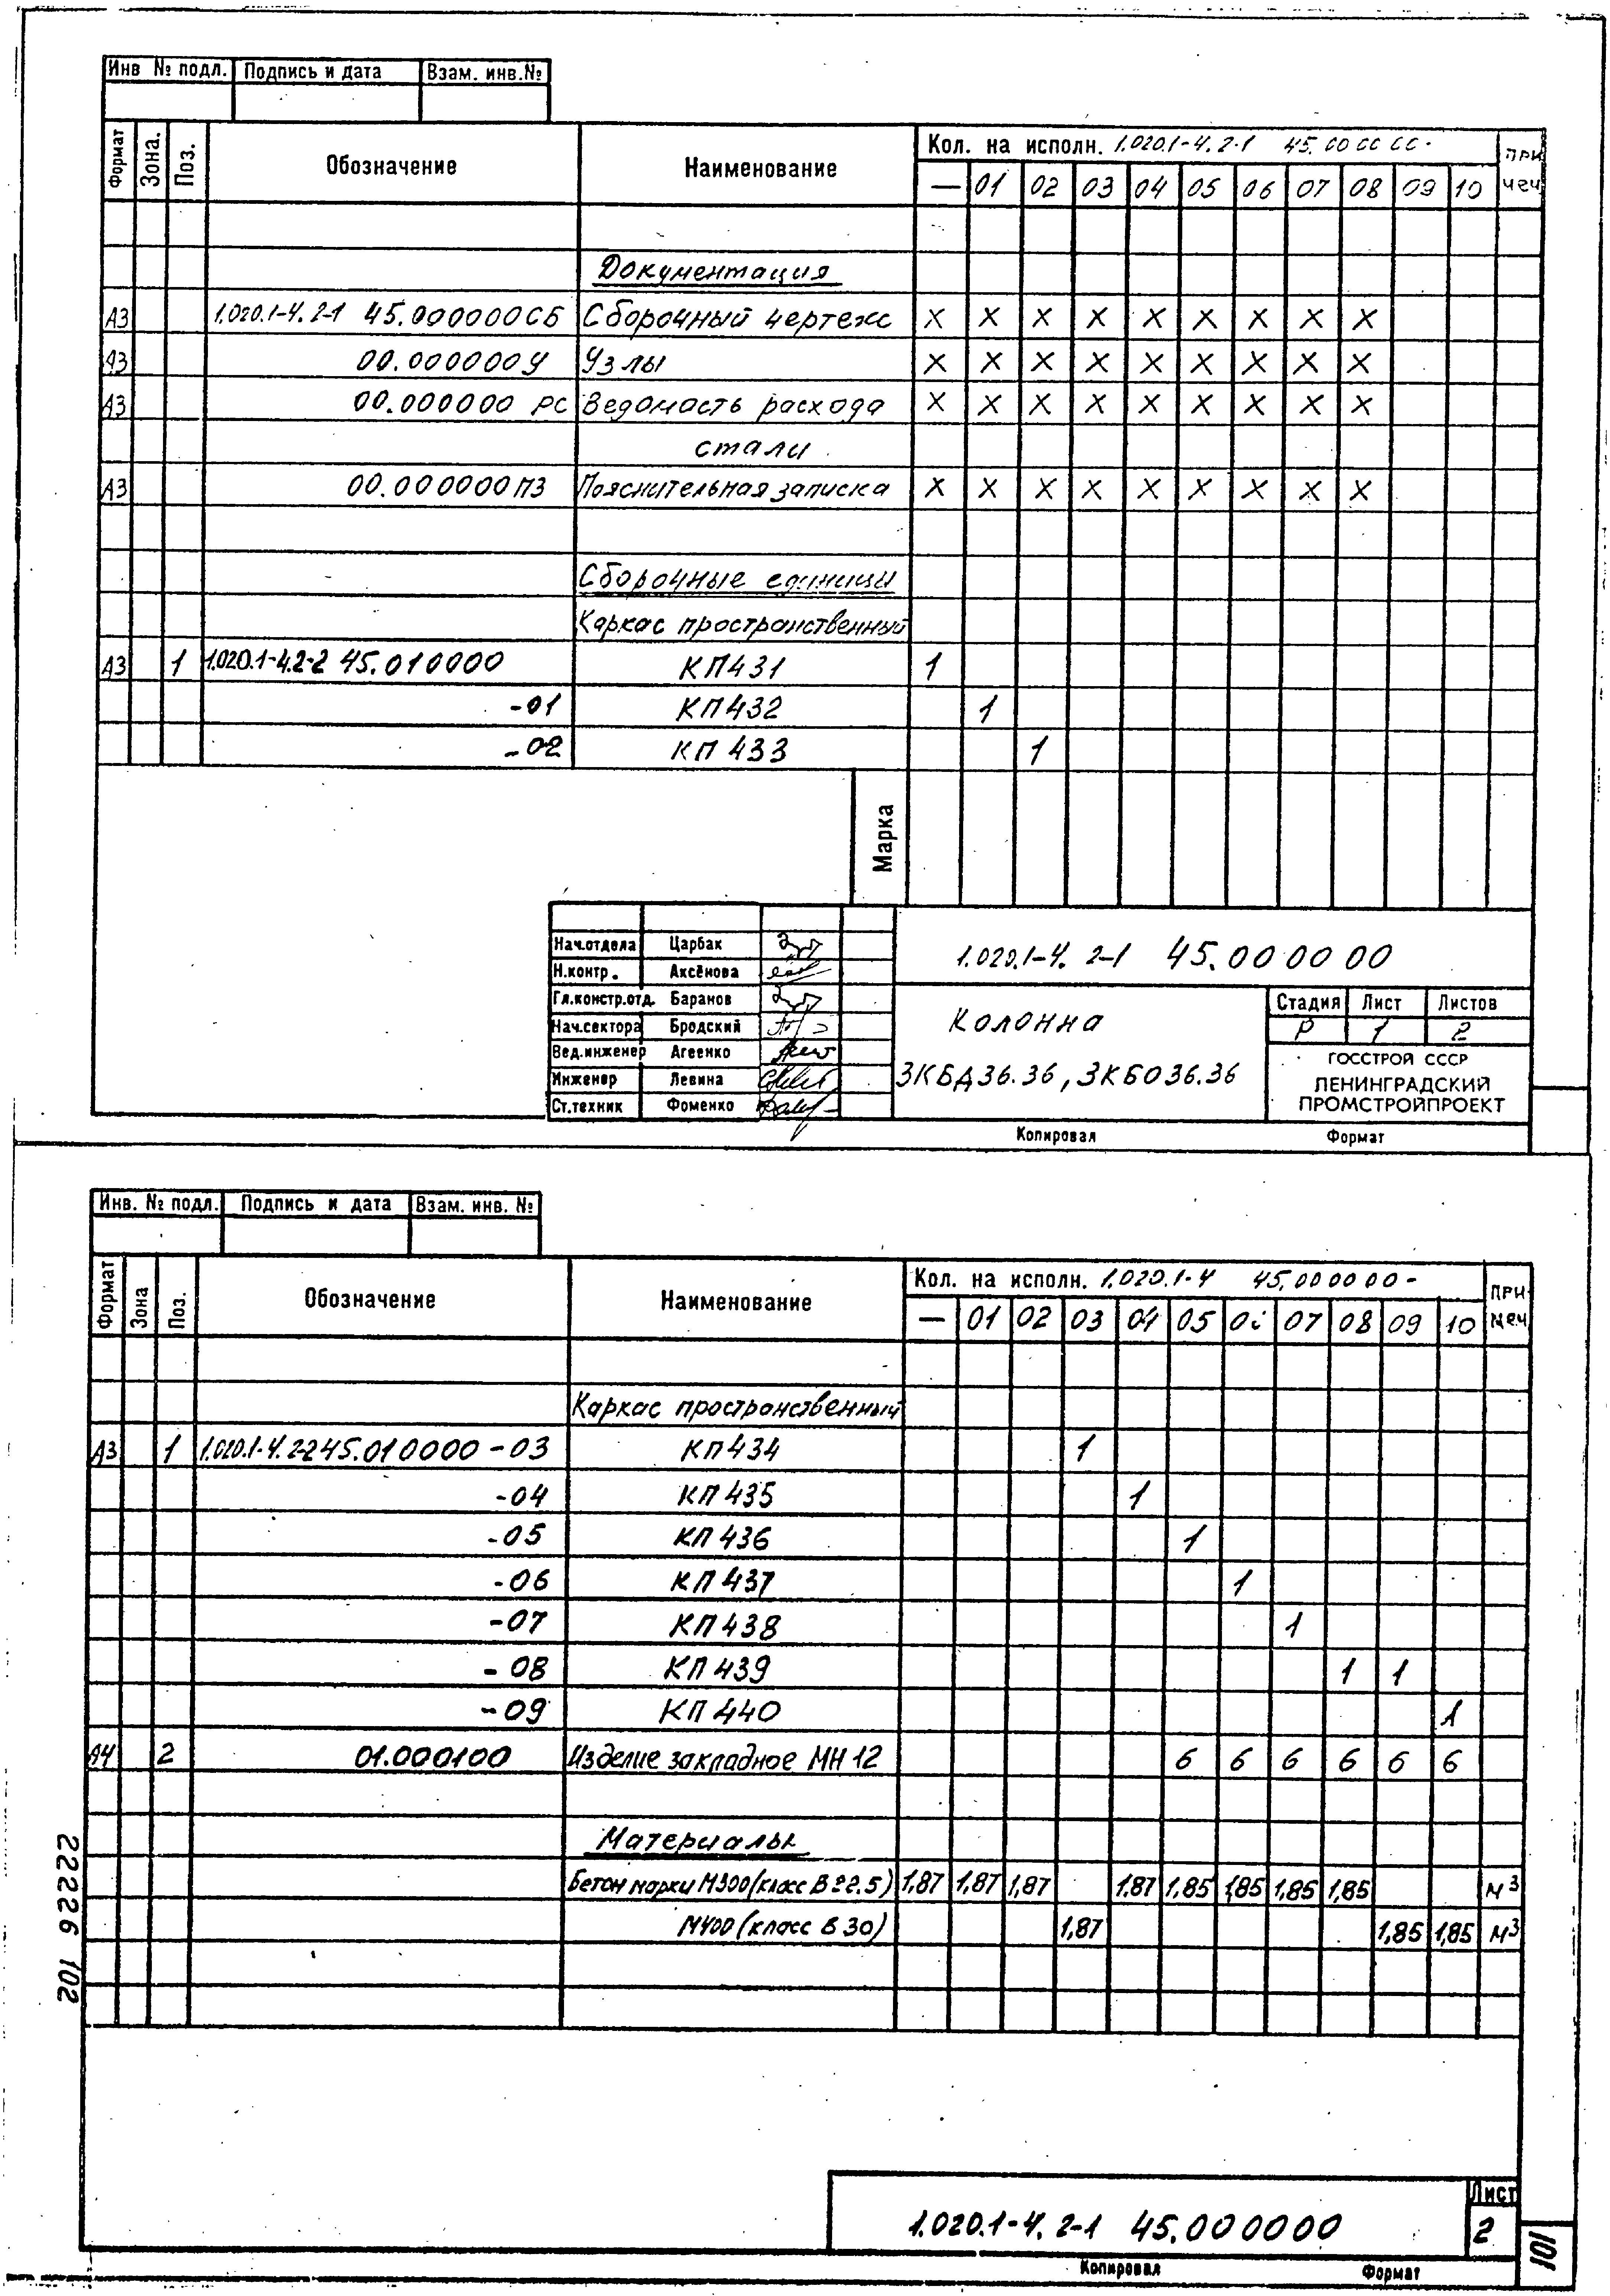 Инв № подл. Подпись и дата Взам. инв.№
Формат Зона. Поз. Обозначение Наименование Кол. на исполн. 1.020.1-4. 2-1 45.00 00 00- При меч
— 01 02 03 04 05 06 07 08 09 10
Документация
А3 1.020.1-4. 2-1 45.000000СБ Сборочный чертеж X X X X X X X X X
А3 00.000000У Узлы X X X X X X X X X
А3 00.000000 РС Ведомасть расхода X X X X X X X X X
стали
А3 00.000000ПЗ Пояснительная записка X X X X X X X X X
Сборочные единицы
Каркас пространственный
А3 1 1.020.1-4.2-2 45.010000 КП431 1
-01 КП432 1
-02 КП 433 1
Марка
Нач.отдела Царбак
Н.контр. Аксёнова
Гл.констр.отд. Баранов
Нач.сектора Бродский
Вед.инженер Агеенко
Инженер Левина
Ст.техник Фоменко
1.020.1-4. 2-1 45.00 00 00
Колонна
3КБД36.36, 3КБО36.36
Стадия Лист Листов
Р 1 2
ГОССТРОЙ СССР
ЛЕНИНГРАДСКИЙ
ПРОМСТРОЙПРОЕКТ
Копировал Формат
Инв. № подл. Подпись и дата Взам. инв. №
Формат Зона Поз. Обозначение Наименование Кол. на исполн. 1.020.1-4 45.00 00 00- При- меч
— 01 02 03 04 05 06 07 08 09 10
Каркас пространственный
А3 1 1.020.1-4. 2-2 45.010000-03 КП434 1
-04 КП 435 1
-05 КП 436 1
-06 КП 437 1
-07 КП 438 1
-08 КП 439 1 1
-09 КП 440 1
А4 2 01.000100 Изделие закладное МН 12 6 6 6 6 6 6
Материалы
Бетон марки М300 (класс В 22.5) 1,87 1,87 1,87 1,87 1,85 1,85 1,85 1,85 м³
М400 (класс В 30) 1,87 1,85 1,85 м³
22226 102
1.020.1-4. 2-1 45.000000
Лист
2
101
Копировал Формат